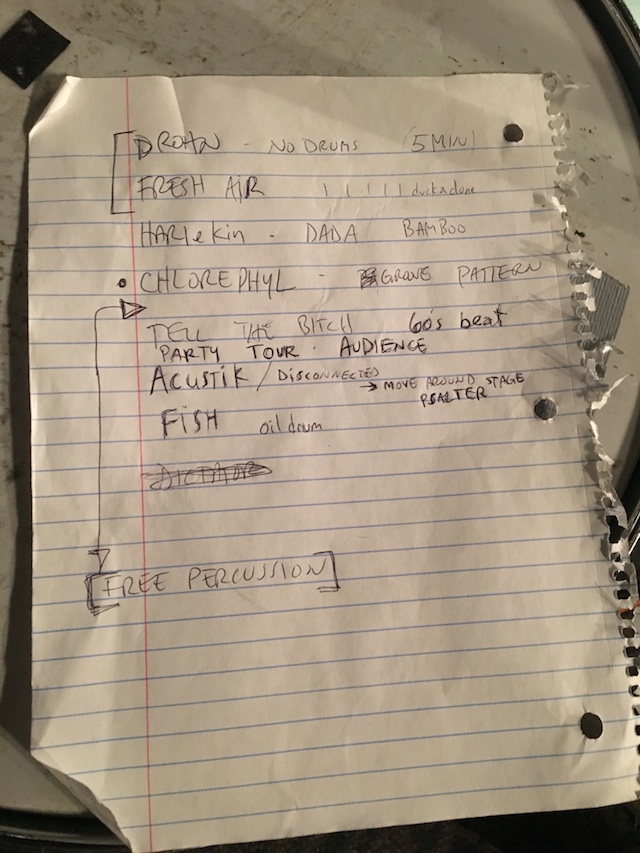 DROHN - NO DRUMS (5 MIN)
FRESH AIR | | | | |
HARLeKin - DADA BAMBOO
• CHLOREPHYL - GROVE PATTERN
TELL THE BITCH 60's beat
PARTY TOUR · AUDIENCE
ACUSTIK / DISCONNECTED
→ MOVE AROUND STAGE
PSALTER
FiSH oil drum
[FREE PERCUSSION]